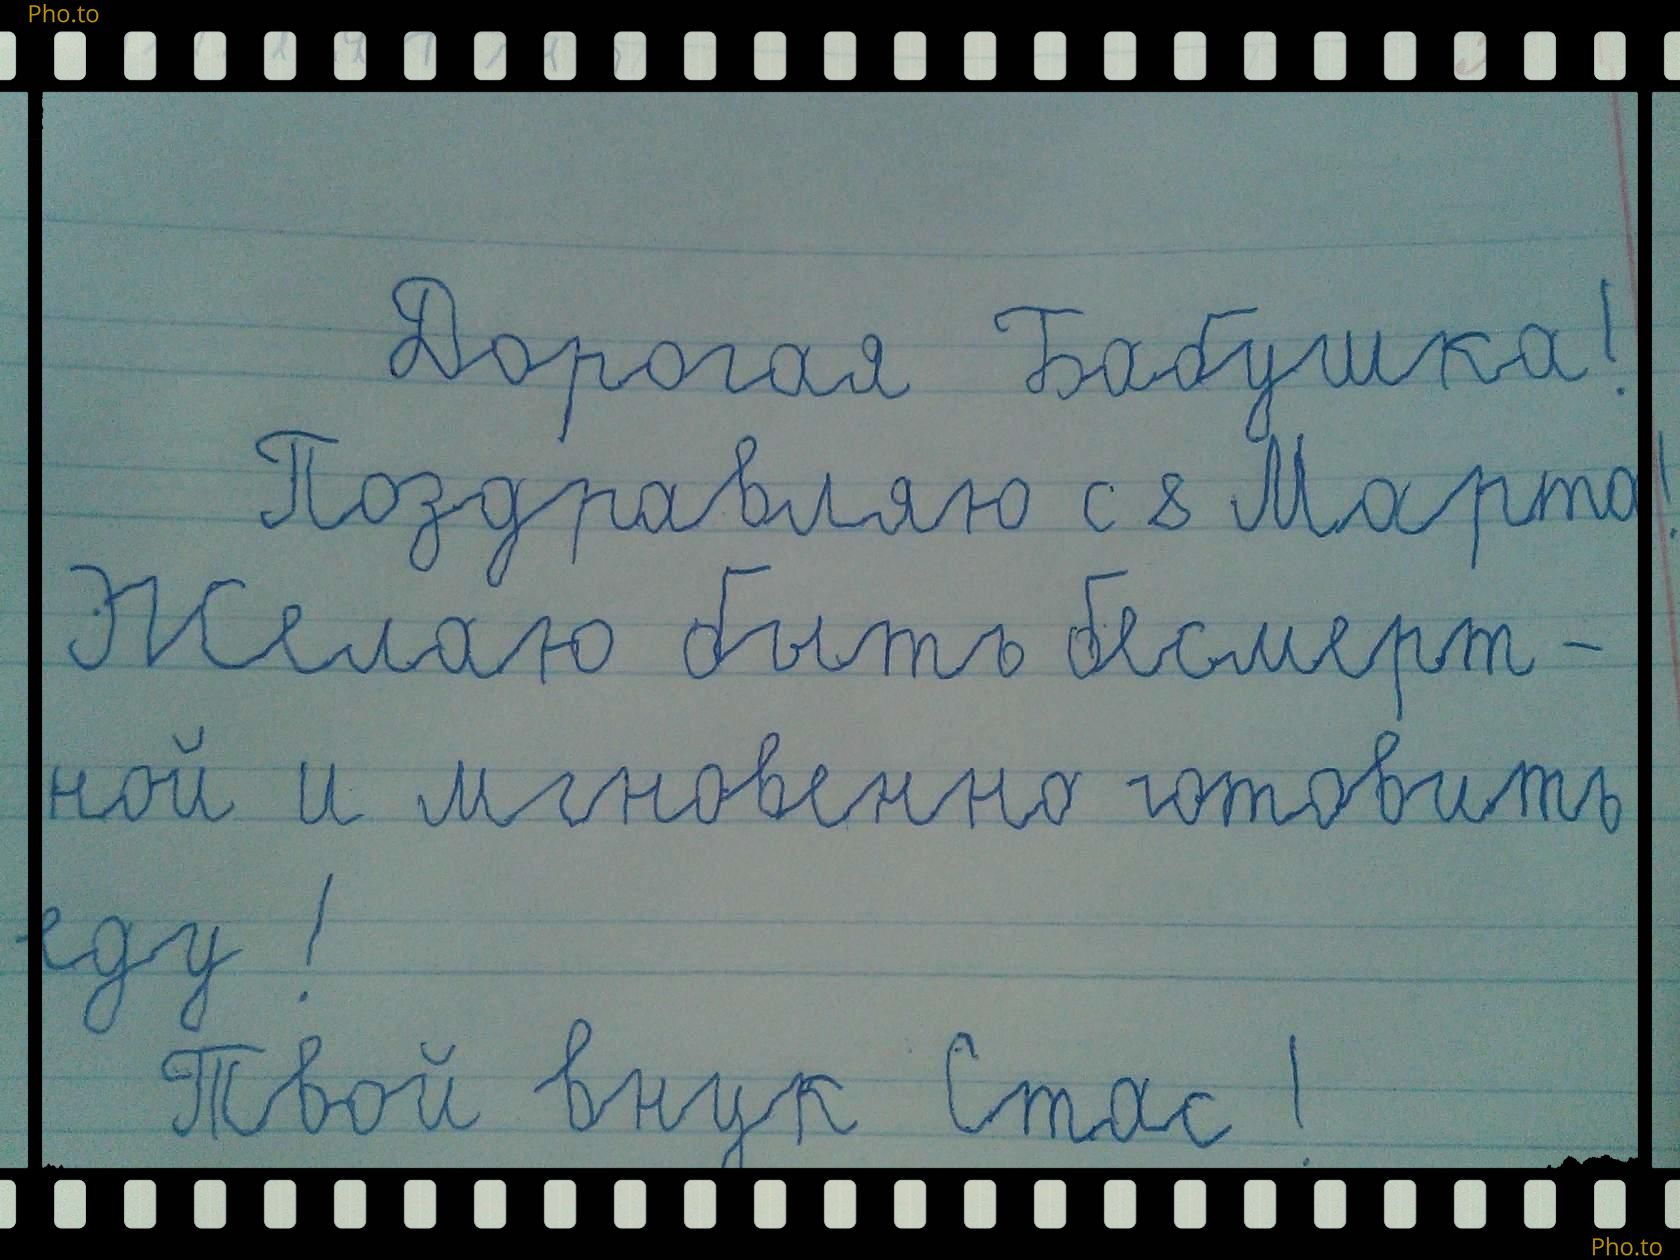 Pho.to
Дорогая Бабушка!
Поздравляю с 8 Марта!
Желаю быть бесмерт-
ной и мгновенно готовить
еду!
Твой внук Стас!
Pho.to